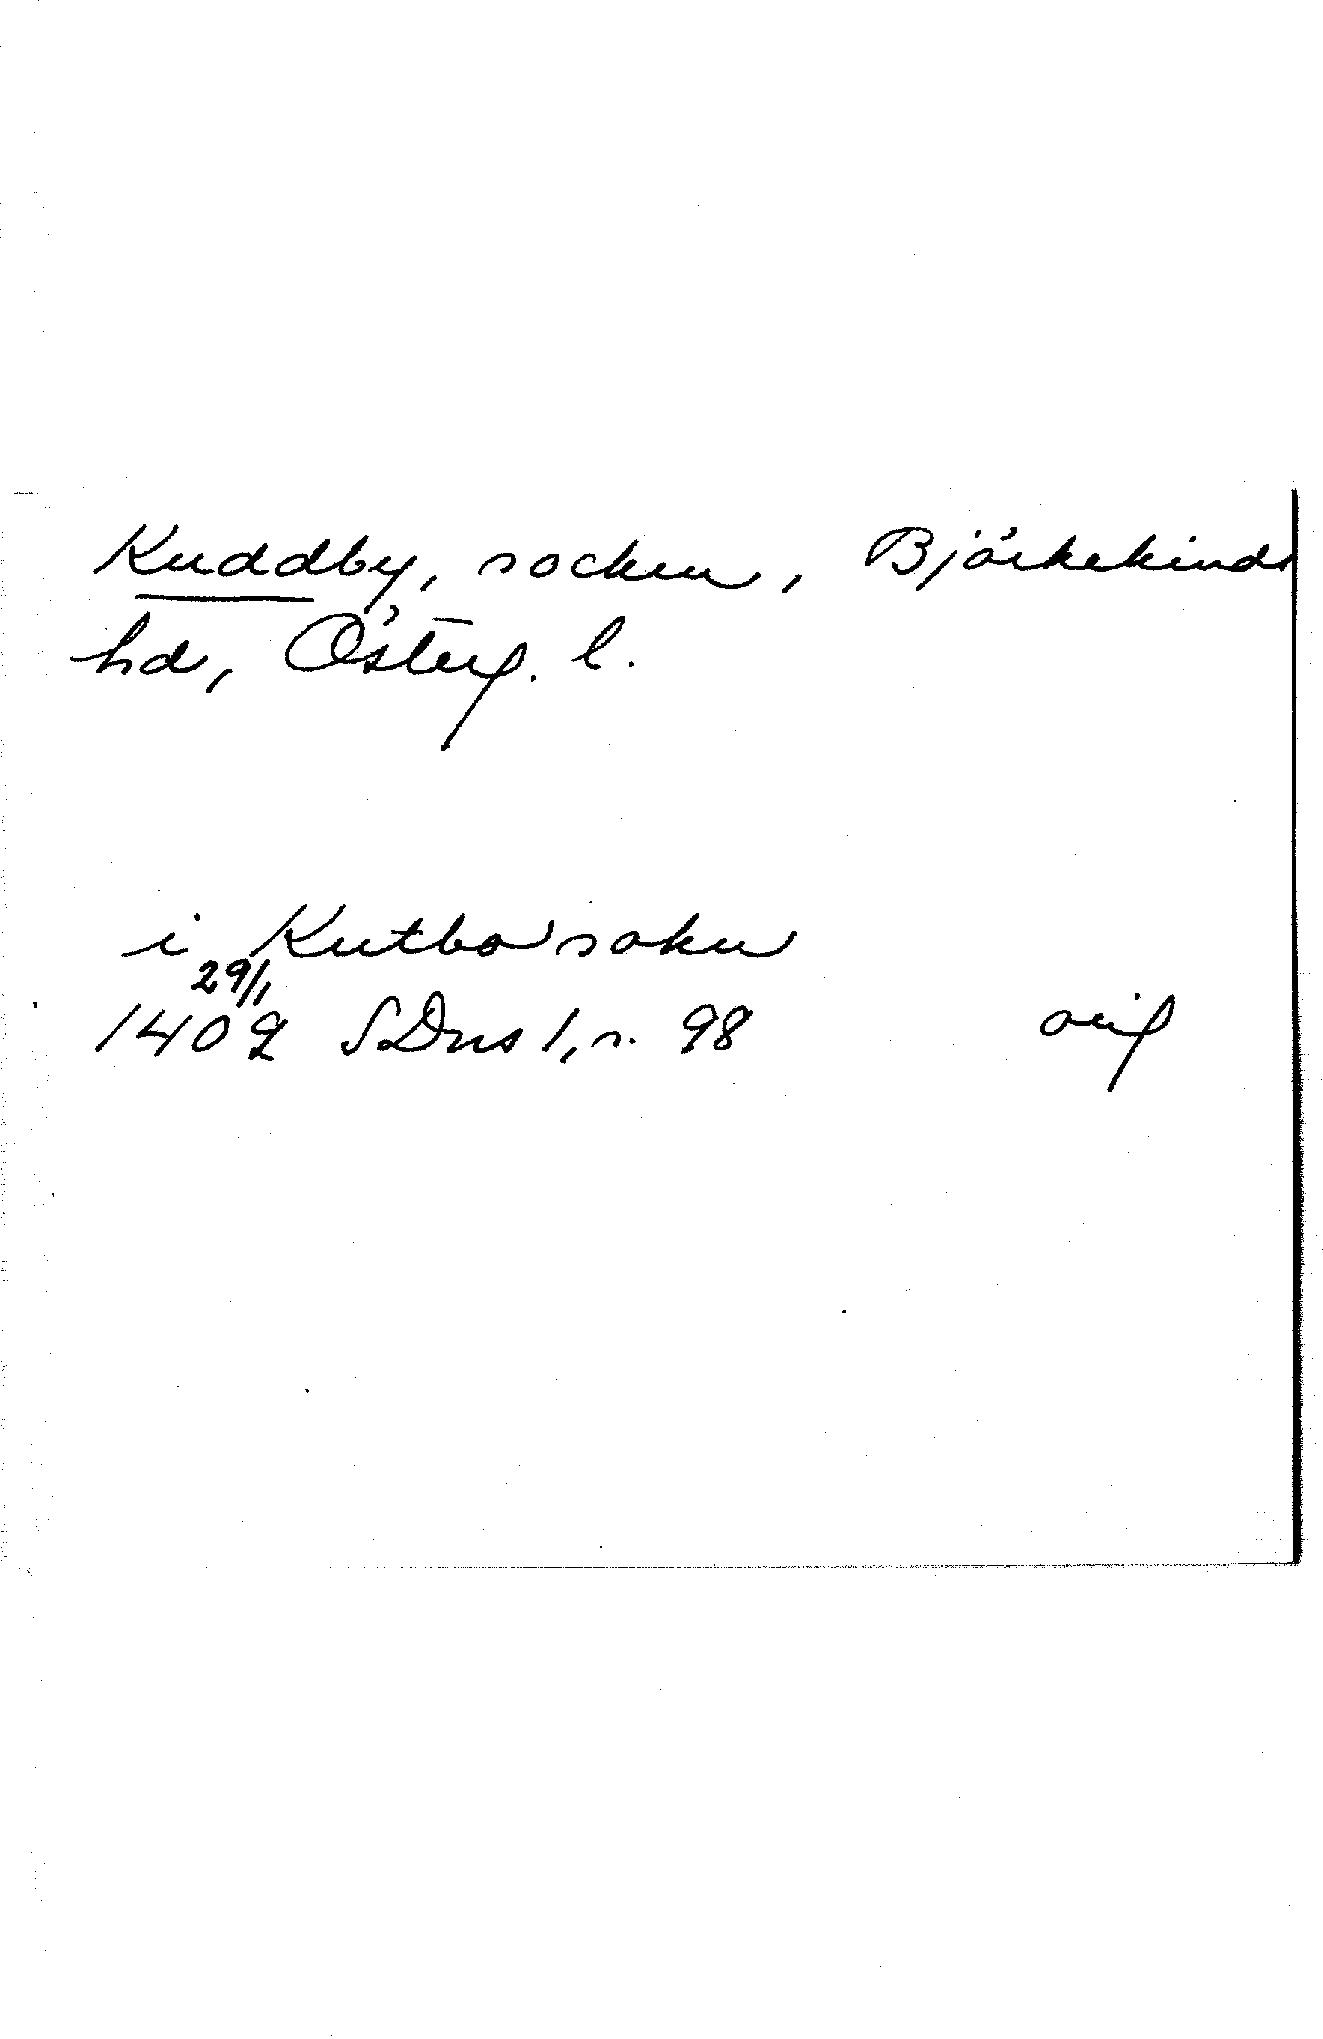 Kuddby, socken, Björkekinds
hd, Österg. l.
i Kutbo sokn
29/1
1402 SDns 1, s. 98 orig